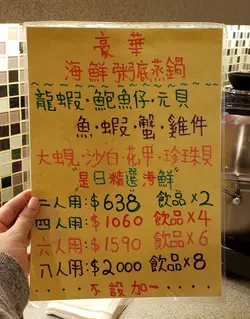 豪華
海鮮粥底蒸鍋
龍蝦·鮑魚仔·元貝
魚·蝦·蟹·雞件
大蜆·沙白·花甲·珍珠貝
"是日精選海鮮"
二人用:$638 飲品×2
四人用:$1060 飲品×4
六人用:$1590 飲品×6
八人用:$2000 飲品×8
不設加一